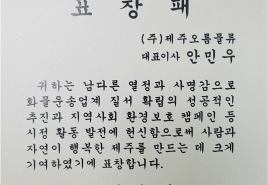 표창패
(주)제주오름물류
대표이사 안민우
귀하는 남다른 열정과 사명감으로
화물운송업계 질서 확립의 성공적인
추진과 지역사회 환경보호 캠페인 등
시정 활동 발전에 헌신함으로써 사람과
자연이 행복한 제주를 만드는 데 크게
기여하였기에 표창합니다.